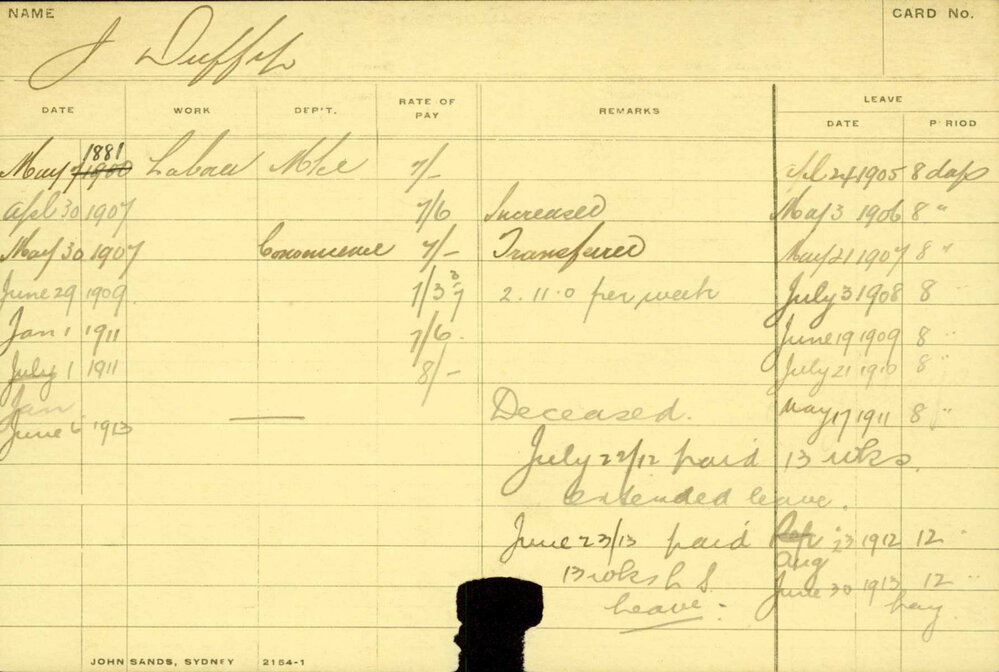 NAME J Duffy CARD No.
LEAVE
DATE WORK DEP'T. RATE OF PAY REMARKS DATE PERIOD
May 7 1900 1881 Labour Mtce 7/- 24 1905 8 days
Apl 30 1907 7/6 Increased May 3 1906 8 "
May 30 1907 7/- Transferred May 21 1907 8 "
June 29 1909 7/3 3/7 2.11.0 per week July 3 1908 8
Jan 1 1911 7/6 June 19 1909 8 "
July 1 1911 8/- July 21 1910 8 "
Jan
June 6 1913 — Deceased. May 17 1911 8 "
July 22/12 paid 13 wks.
extended leave.
June 23/13 paid 23 1912 12 "
Aug
13 wks L S June 30 1913 12 "
leave.
JOHN SANDS, SYDNEY 2154-1